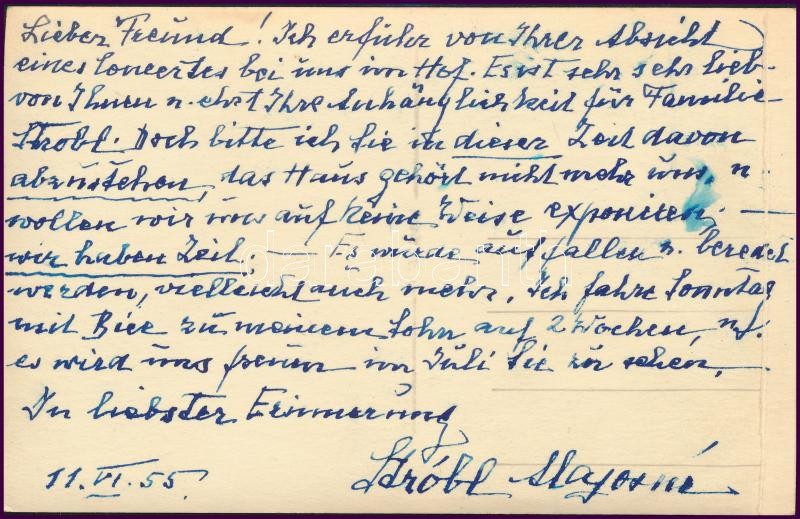 Lieber Freund! Ich erfuhr von Ihrer Absicht
eines Concertes bei uns im Hof. Es ist sehr sehr lieb
von Ihnen u. ehrt Ihre Anhänglichkeit für Familie
Strobl. Doch bitte ich Sie in dieser Zeit davon
abzustehen, das Haus gehört nicht mehr uns, u.
wollen wir uns auf keine Weise exponiren, —
wir haben Zeit. Es würde auffallen u. beredet
werden, vielleicht auch mehr. Ich fahre Sonntag
mit zu meinem Sohn auf 2 Wochen,
es wird uns freuen im Juli Sie zu sehen.
In liebster Erinnerung
Stróbl Alajosné
11. VI. 55.
darabanth